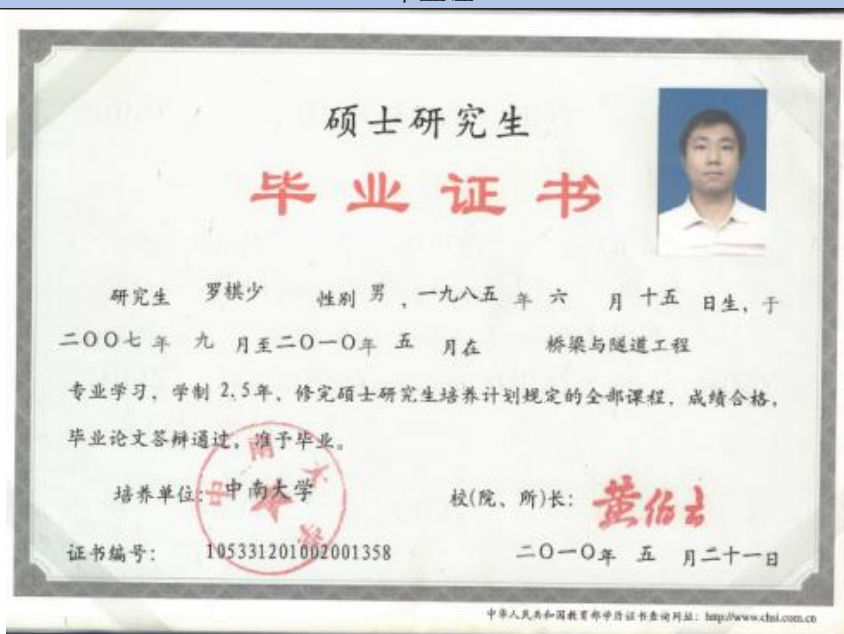 硕士研究生
毕业证书
研究生 罗棋少 性别 男 ，一九八五 年 六 月 十五 日生，于
二〇〇七 年 九 月至二〇一〇年 五 月在 桥梁与隧道工程
专业学习，学制 2.5年，修完硕士研究生培养计划规定的全部课程，成绩合格，
毕业论文答辩通过，准予毕业。
培养单位：中南大学 校(院、所)长：黄伯云
中南大学
证书编号： 105331201002001358 二〇一〇年 五 月二十一日
中华人民共和国教育部学历证书查询网址：http://www.chsi.com.cn